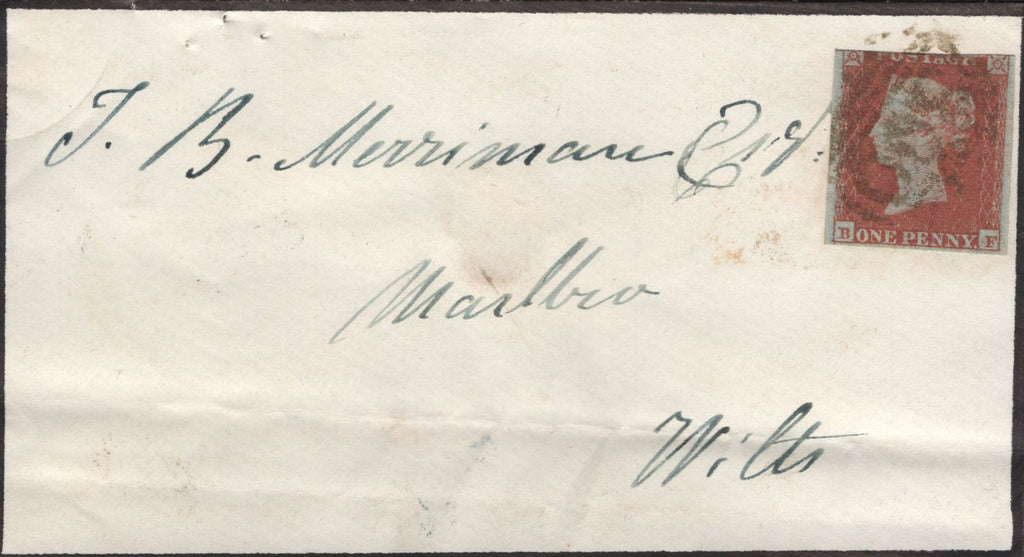 POSTAGE
T. B. Merriman Esqr.
B ONE PENNY. F
Marlbro
Wilts